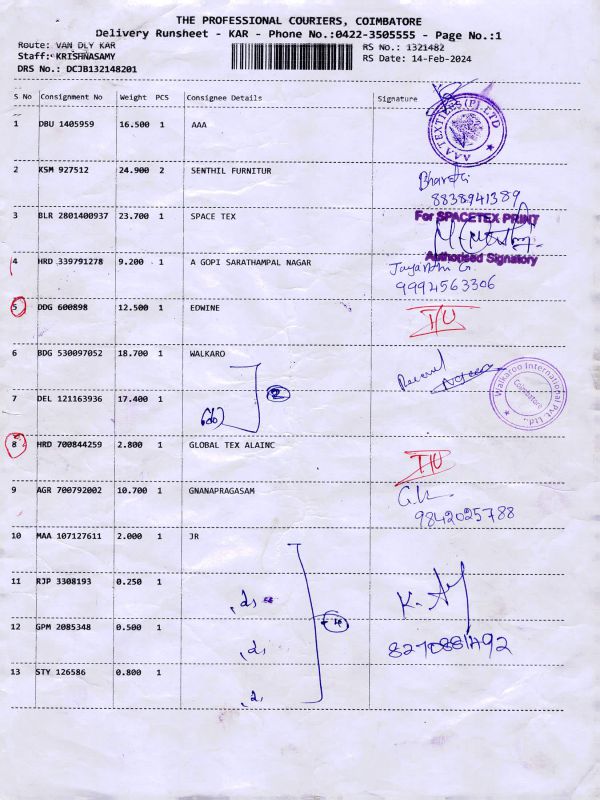 THE PROFESSIONAL COURIERS, COIMBATORE
Delivery Runsheet - KAR - Phone No.:0422-3505555 - Page No.:1
Route: VAN DLY KAR
RS No.: 1321482
Staff: KRISHNASAMY
RS Date: 14-Feb-2024
DRS No.: DCJB132148201
S No Consignment No Weight PCS Consignee Details Signature
1 DBU 1405959 16.500 1 AAA
AAA TEXTILES (P) LTD
2 KSM 927512 24.900 2 SENTHIL FURNITUR
Bharathi
8838941389
3 BLR 2801400937 23.700 1 SPACE TEX
For SPACETEX PRINT
Authorised Signatory
4 HRD 339791278 9.200 1 A GOPI SARATHAMPAL NAGAR
Jayanthi G.
9994563306
5 DDG 600898 12.500 1 EDWINE
I/U
6 BDG 530097052 18.700 1 WALKARO
2
Walkaroo International Pvt Ltd.,
Coimbatore
7 DEL 121163936 17.400 1
8 HRD 700844259 2.800 1 GLOBAL TEX ALAINC
I/U
9 AGR 700792002 10.700 1 GNANAPRAGASAM
9842025788
10 MAA 107127611 2.000 1 JR
11 RJP 3308193 0.250 1
4
12 GPM 2085348 0.500 1
13 STY 126586 0.800 1